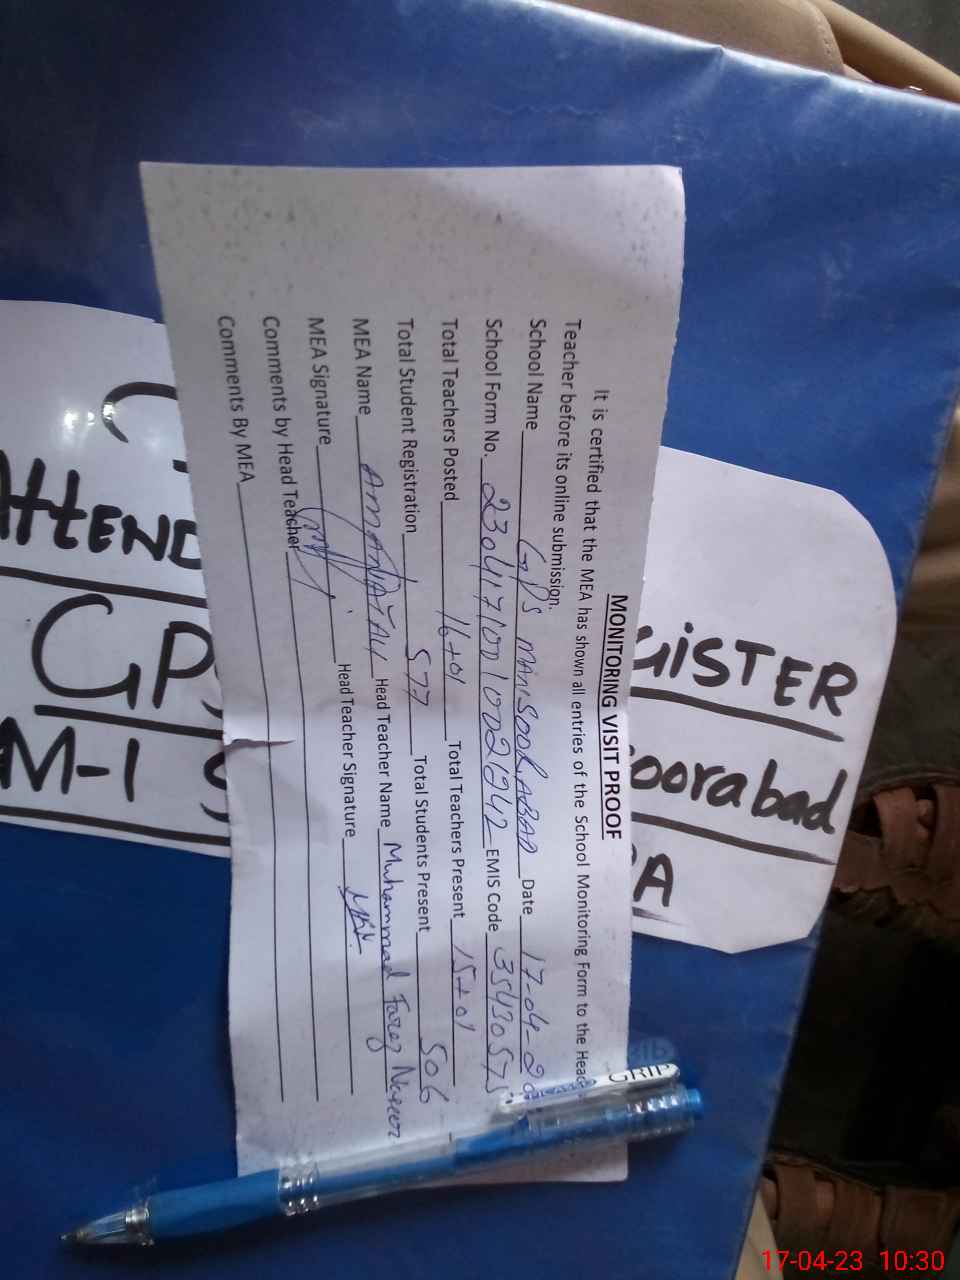 MONITORING VISIT PROOF
It is certified that the MEA has shown all entries of the School Monitoring Form to the Head
Teacher before its online submission.
School Name GPS MANSOORABAD Date 17-04-2
School Form No. EMIS Code 35430575
Total Teachers Posted 16+01 Total Teachers Present 15+01
Total Student Registration 577 Total Students Present 506
MEA Name AMANAT ALI Head Teacher Name Muhammad Naseer
MEA Signature Head Teacher Signature
Comments by Head Teacher
Comments By MEA
GRIP
ATTEND GISTER
GP oorabad
M-1 A
17-04-23 10:30